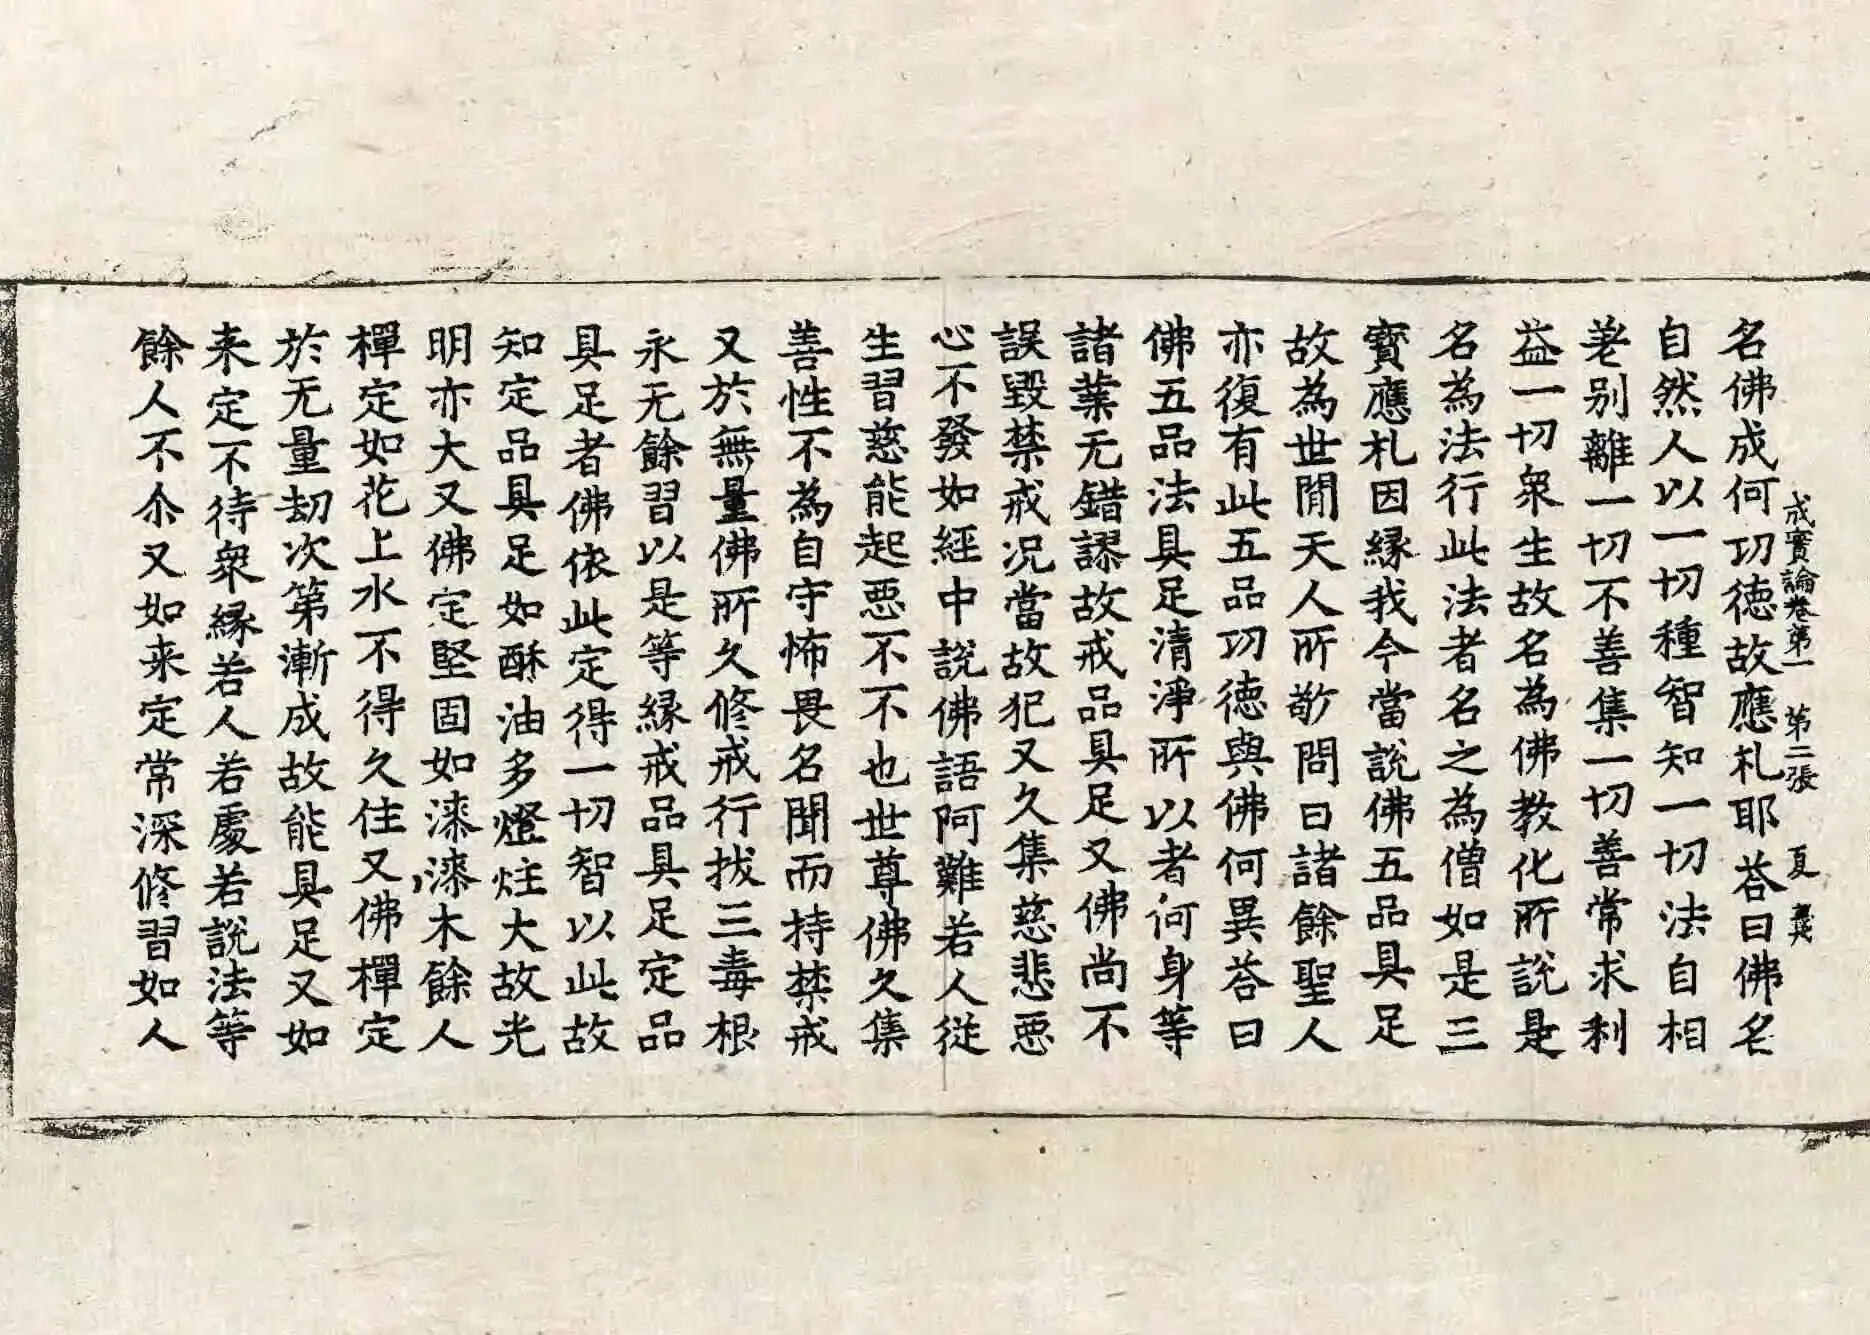 成實論卷第一　第二張　夏
名佛成何功徳故應札耶荅曰佛名
自然人以一切種智知一切法自相
差别離一切不善集一切善常求利
益一切衆生故名為佛教化所說是
名為法行此法者名之為僧如是三
寳應札因縁我今當說佛五品具足
故為世間天人所敬問曰諸餘聖人
亦復有此五品功徳與佛何異荅曰
佛五品法具足清淨所以者何身等
諸業无錯謬故戒品具足又佛尚不
誤毀禁戒况當故犯又久集慈悲惡
心不發如經中說佛語阿難若人從
生習慈能起惡不不也世尊佛久集
善性不為自守怖畏名聞而持禁戒
又於無量佛所久修戒行拔三毒根
永无餘習以是等縁戒品具足定品
具足者佛依此定得一切智以此故
知定品具足如酥油多燈炷大故光
明亦大又佛定堅固如漆漆木餘人
禪定如花上水不得久住又佛禪定
於无量劫次第漸成故能具足又如
来定不待衆縁若人若處若說法等
餘人不尒又如来定常深修習如人